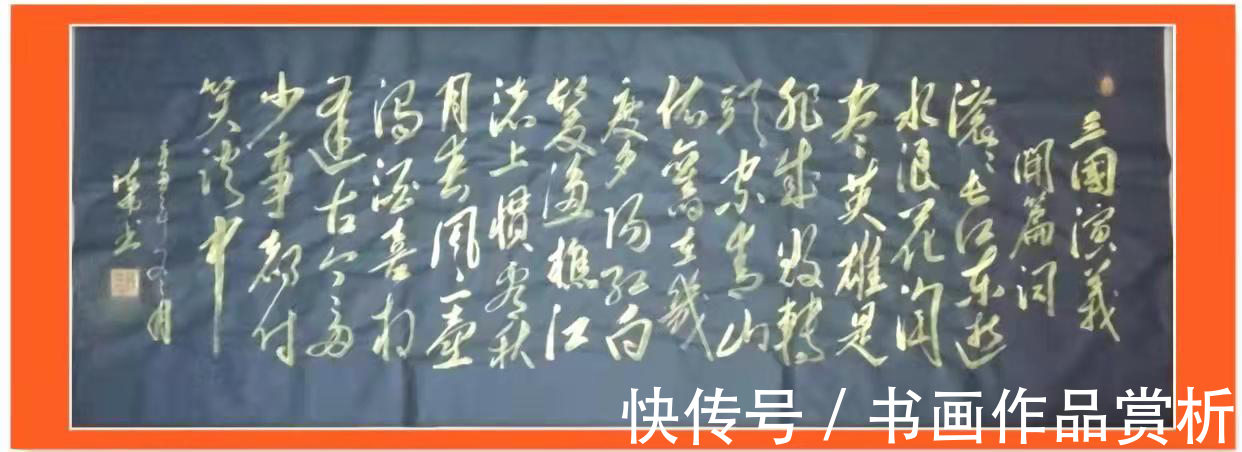 三國演義
開篇词
滚滚长江东逝
水浪花淘
尽英雄是
非成败轉
頭空青山
依舊在幾
度夕阳红白
髮渔樵江
渚上惯看秋
月春風一壶
浊酒喜相
逢古今多
少事都付
笑谈中
快传号 / 书画作品赏析